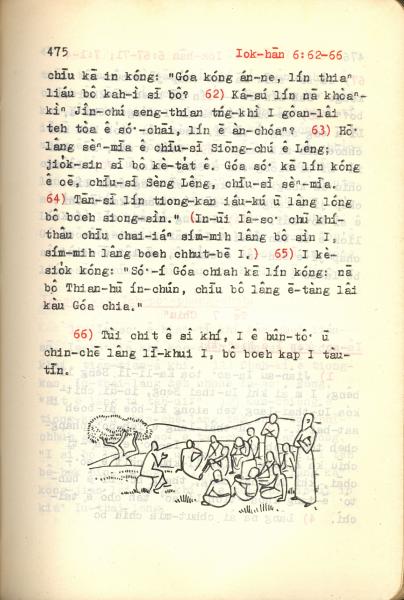 475 Iok-hān 6:62-66
chīu kā in kóng: "Góa kóng án-ne, lín thiaⁿ
liáu bô kah-ì sī bô? 62) Ká-sú lín nā khòaⁿ-
kìⁿ Jîn-chú seng-thian tńg-khì I goân-lâi
teh tòa ê só͘-chāi, lín ē àn-chóaⁿ? 63) Hō͘
lâng sèⁿ-mīa ê chīu-sī Siōng-chú ê Lêng;
jio̍k-sin sī bô kè-ta̍t ê. Góa só͘ kā lín kóng
ê cē, chīu-sī Sèng Lêng, chīu-sī sèⁿ-mīa.
64) Tān-sī lín tiong-kan iáu-kú ū lâng lóng
bô boeh siong-sìn." (In-ūi Iâ-so͘ chū khí-
thâu chīu chai-iáⁿ sím-mih lâng bô sìn I,
sím-mih lâng boeh chhut-bē I.) 65) I kè-
sio̍k kóng: "Só͘-í Góa chiah kā lín kóng: nā
bô Thian-hū ín-chún, chīu bô lâng ē-tàng lâi
kàu Góa chia."
66) Tùi chit ê sî khí, I ê bûn-tô͘ ū
chin-chē lâng lī-khui I, bô boeh kap I tau-
tīn.